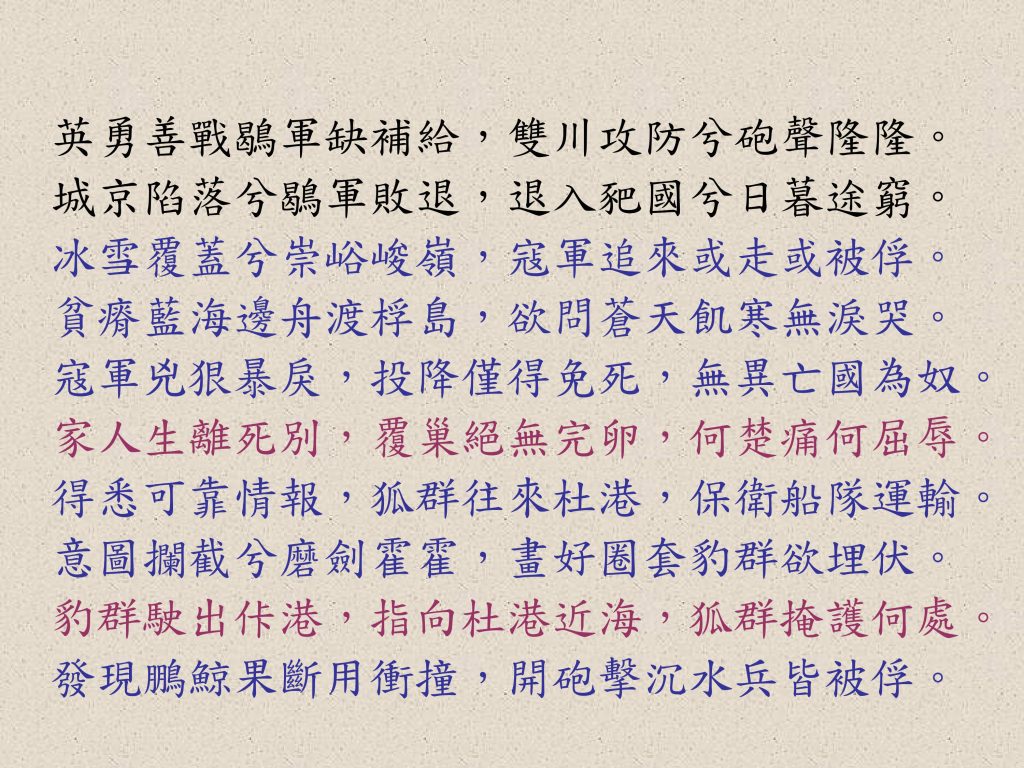 英勇善戰鶡軍缺補給，雙川攻防兮砲聲隆隆。
城京陷落兮鶡軍敗退，退入豝國兮日暮途窮。
冰雪覆蓋兮崇峪峻嶺，寇軍追來或走或被俘。
貧瘠藍海邊舟渡桴島，欲問蒼天飢寒無淚哭。
寇軍兇狠暴戾，投降僅得免死，無異亡國為奴。
家人生離死別，覆巢絕無完卵，何楚痛何屈辱。
得悉可靠情報，狐群往來杜港，保衛船隊運輸。
意圖攔截兮磨劍霍霍，畫好圈套豹群欲埋伏。
豹群駛出佧港，指向杜港近海，狐群掩護何處。
發現鵬鯨果斷用衝撞，開砲擊沉水兵皆被俘。